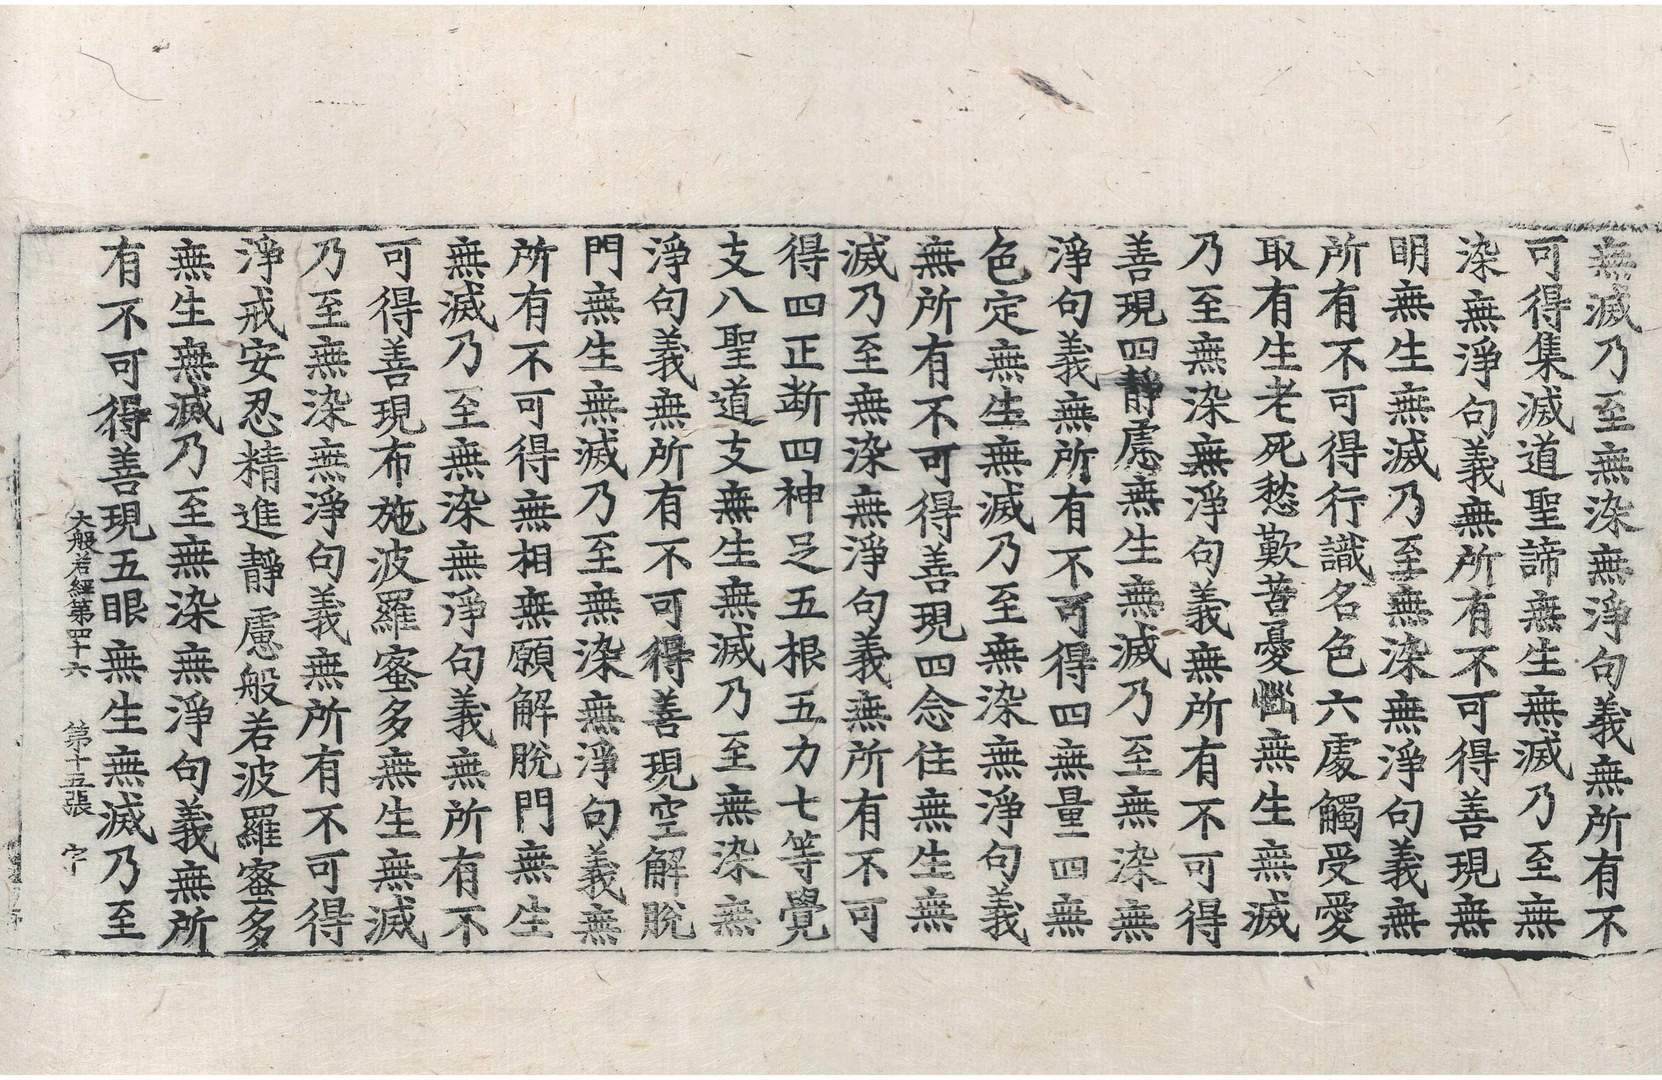 無滅乃至無染無淨句義無所有不
可得集滅道聖諦無生無滅乃至無
染無淨句義無所有不可得善現無
明無生無滅乃至無染無淨句義無
所有不可得行識名色六處觸受愛
取有生老死愁歎苦憂惱無生無滅
乃至無染無淨句義無所有不可得
善現四靜慮無生無滅乃至無染無
淨句義無所有不可得四無量四無
色定無生無滅乃至無染無淨句義
無所有不可得善現四念住無生無
滅乃至無染無淨句義無所有不可
得四正断四神足五根五力七等覺
支八聖道支無生無滅乃至無染無
淨句義無所有不可得善現空解脫
門無生無滅乃至無染無淨句義無
所有不可得無相無願解脫門無生
無滅乃至無染無淨句義無所有不
可得善現布施波羅蜜多無生無滅
乃至無染無淨句義無所有不可得
淨戒安忍精進靜慮般若波羅蜜多
無生無滅乃至無染無淨句義無所
有不可得善現五眼無生無滅乃至
大般若經第四十六 第十五張